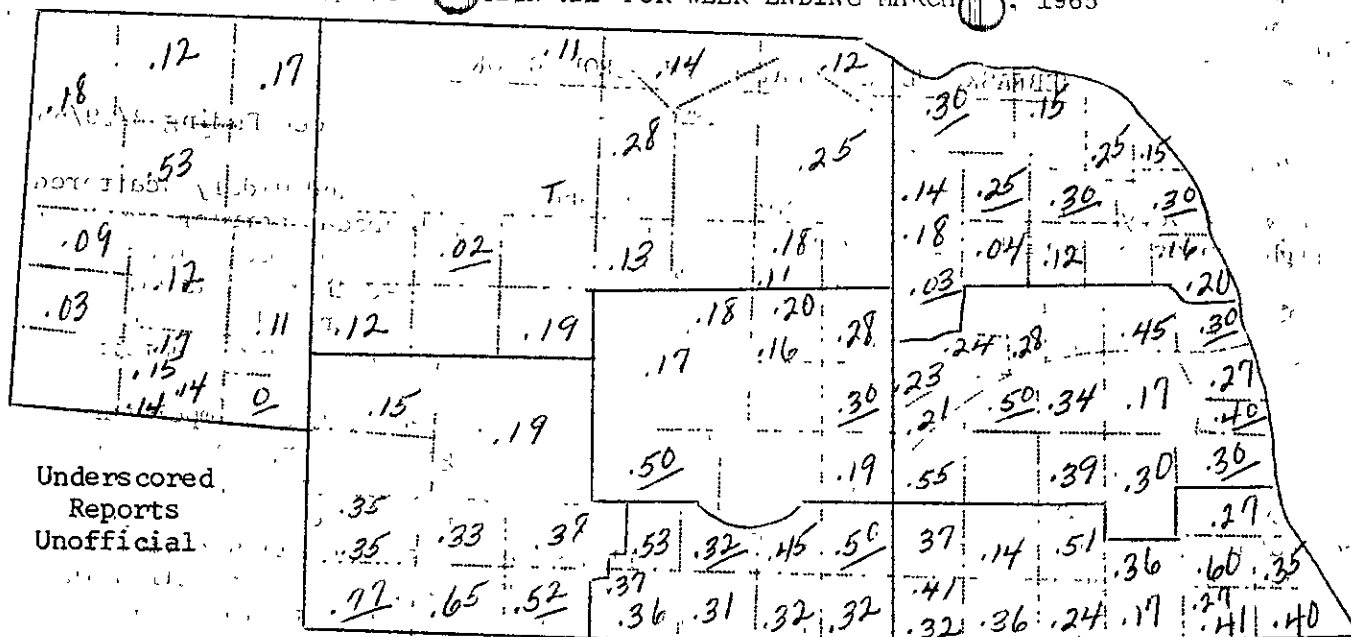 FOR WEEK ENDING MARCH , 1965
.11 .14 .12
.12 .17
.18 .30 .15
.28 .25 .25 .15
.53
T .14 .25 .30 .30
.09 .02 .13 .18 .18 .04 .12 .16
.12 .11 .03 .20
.03 .11 .12 .19 .18 .20 .28 .45 .30
.17 .17 .16 .24 .28
.15 .23 .27
.14 .14 0 .15 .30 .21 .50 .34 .17 .40
.19
.50 .19 .55 .39 .30 .30
Underscored
Reports
Unofficial
.35 .27
.35 .33 .53 .32 .45 37 .14 .51
.37 .41 .36 .60 .35
.77 .65 .52 .36 .31 .32 .32 .32 .36 .24 .17 .27 .41 .40